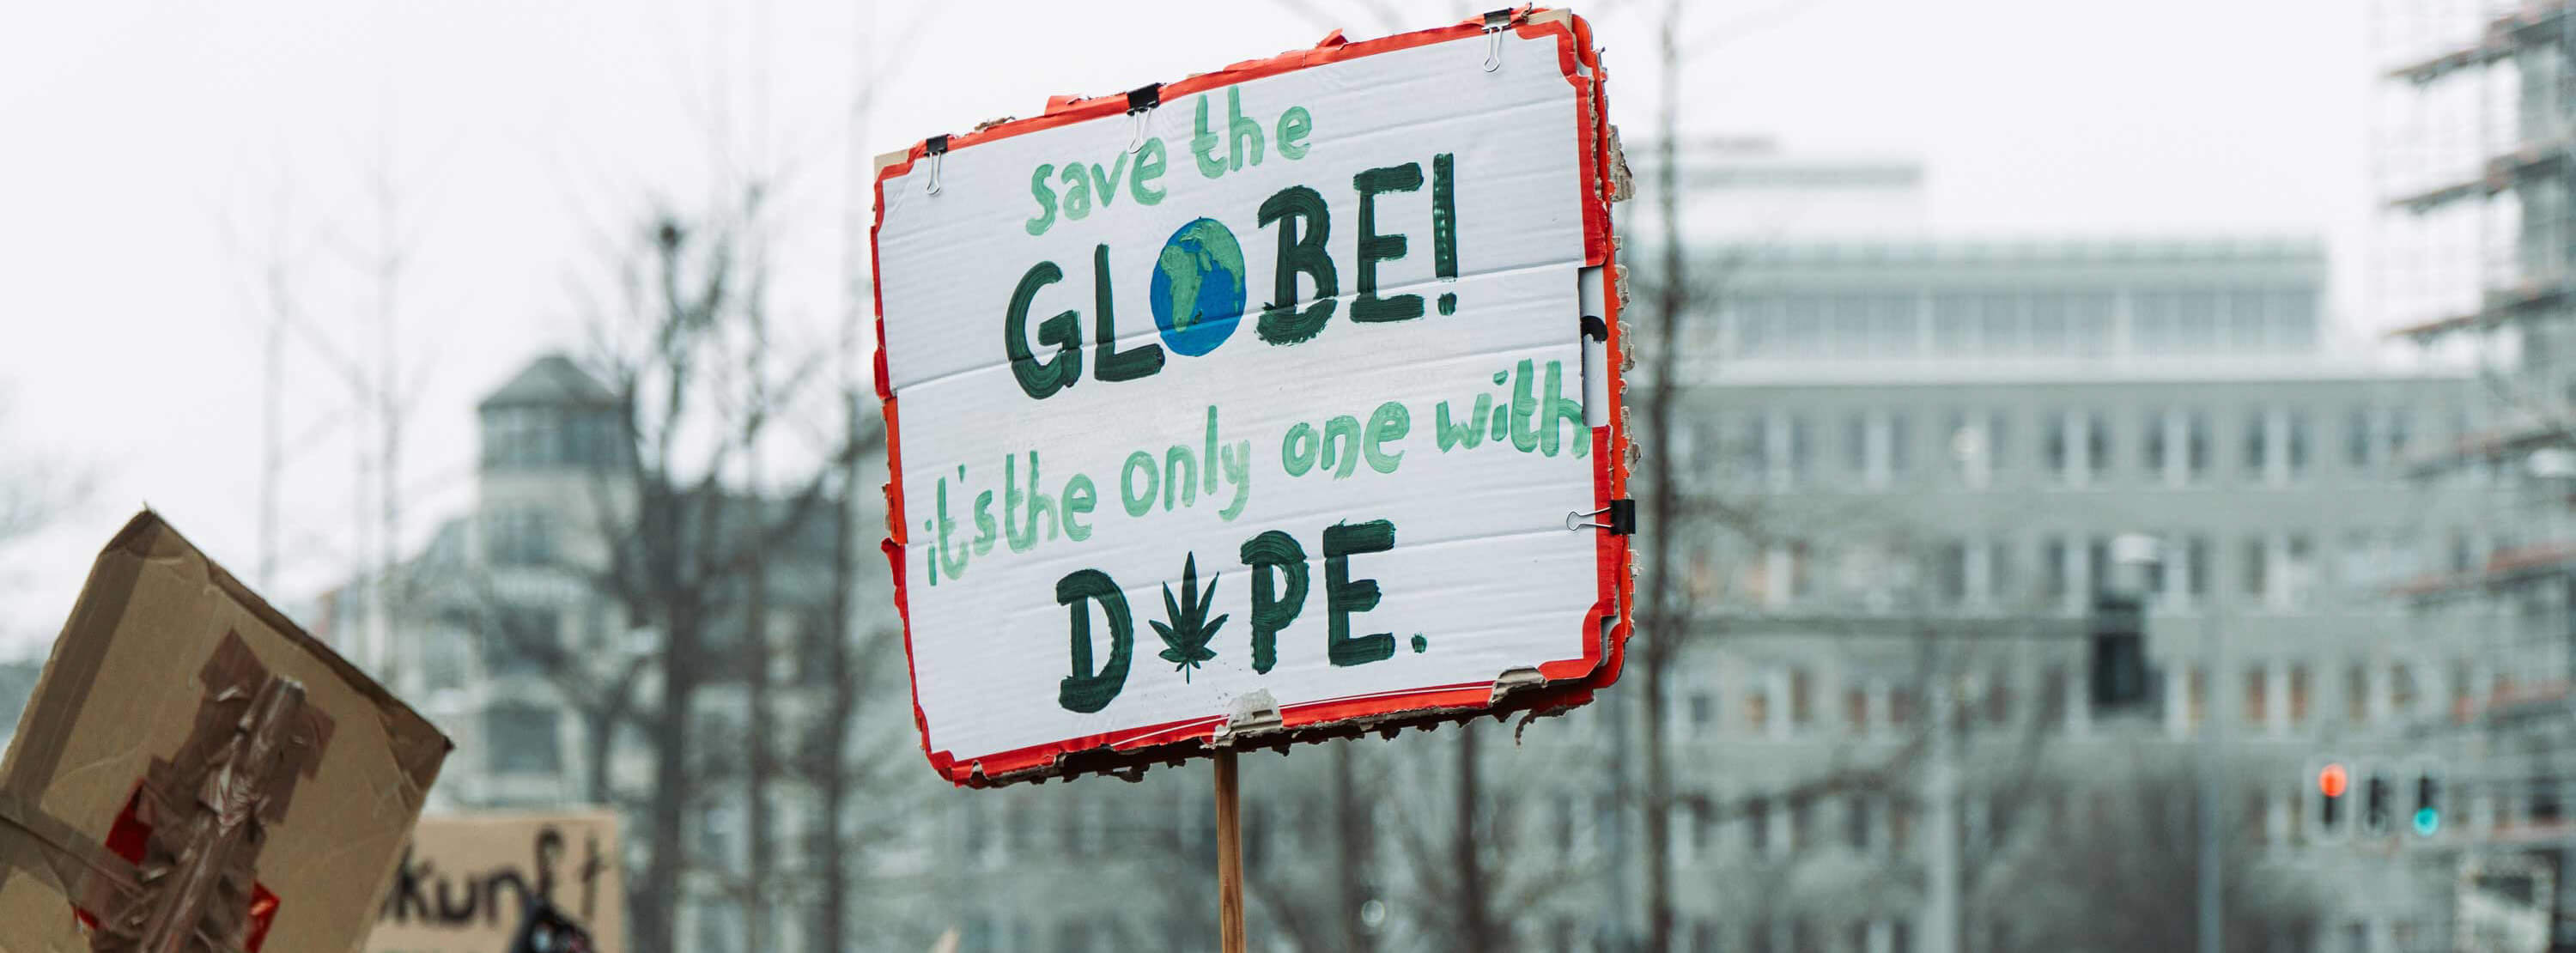 save the
GLOBE!
it's the only one with
DOPE.
kunft